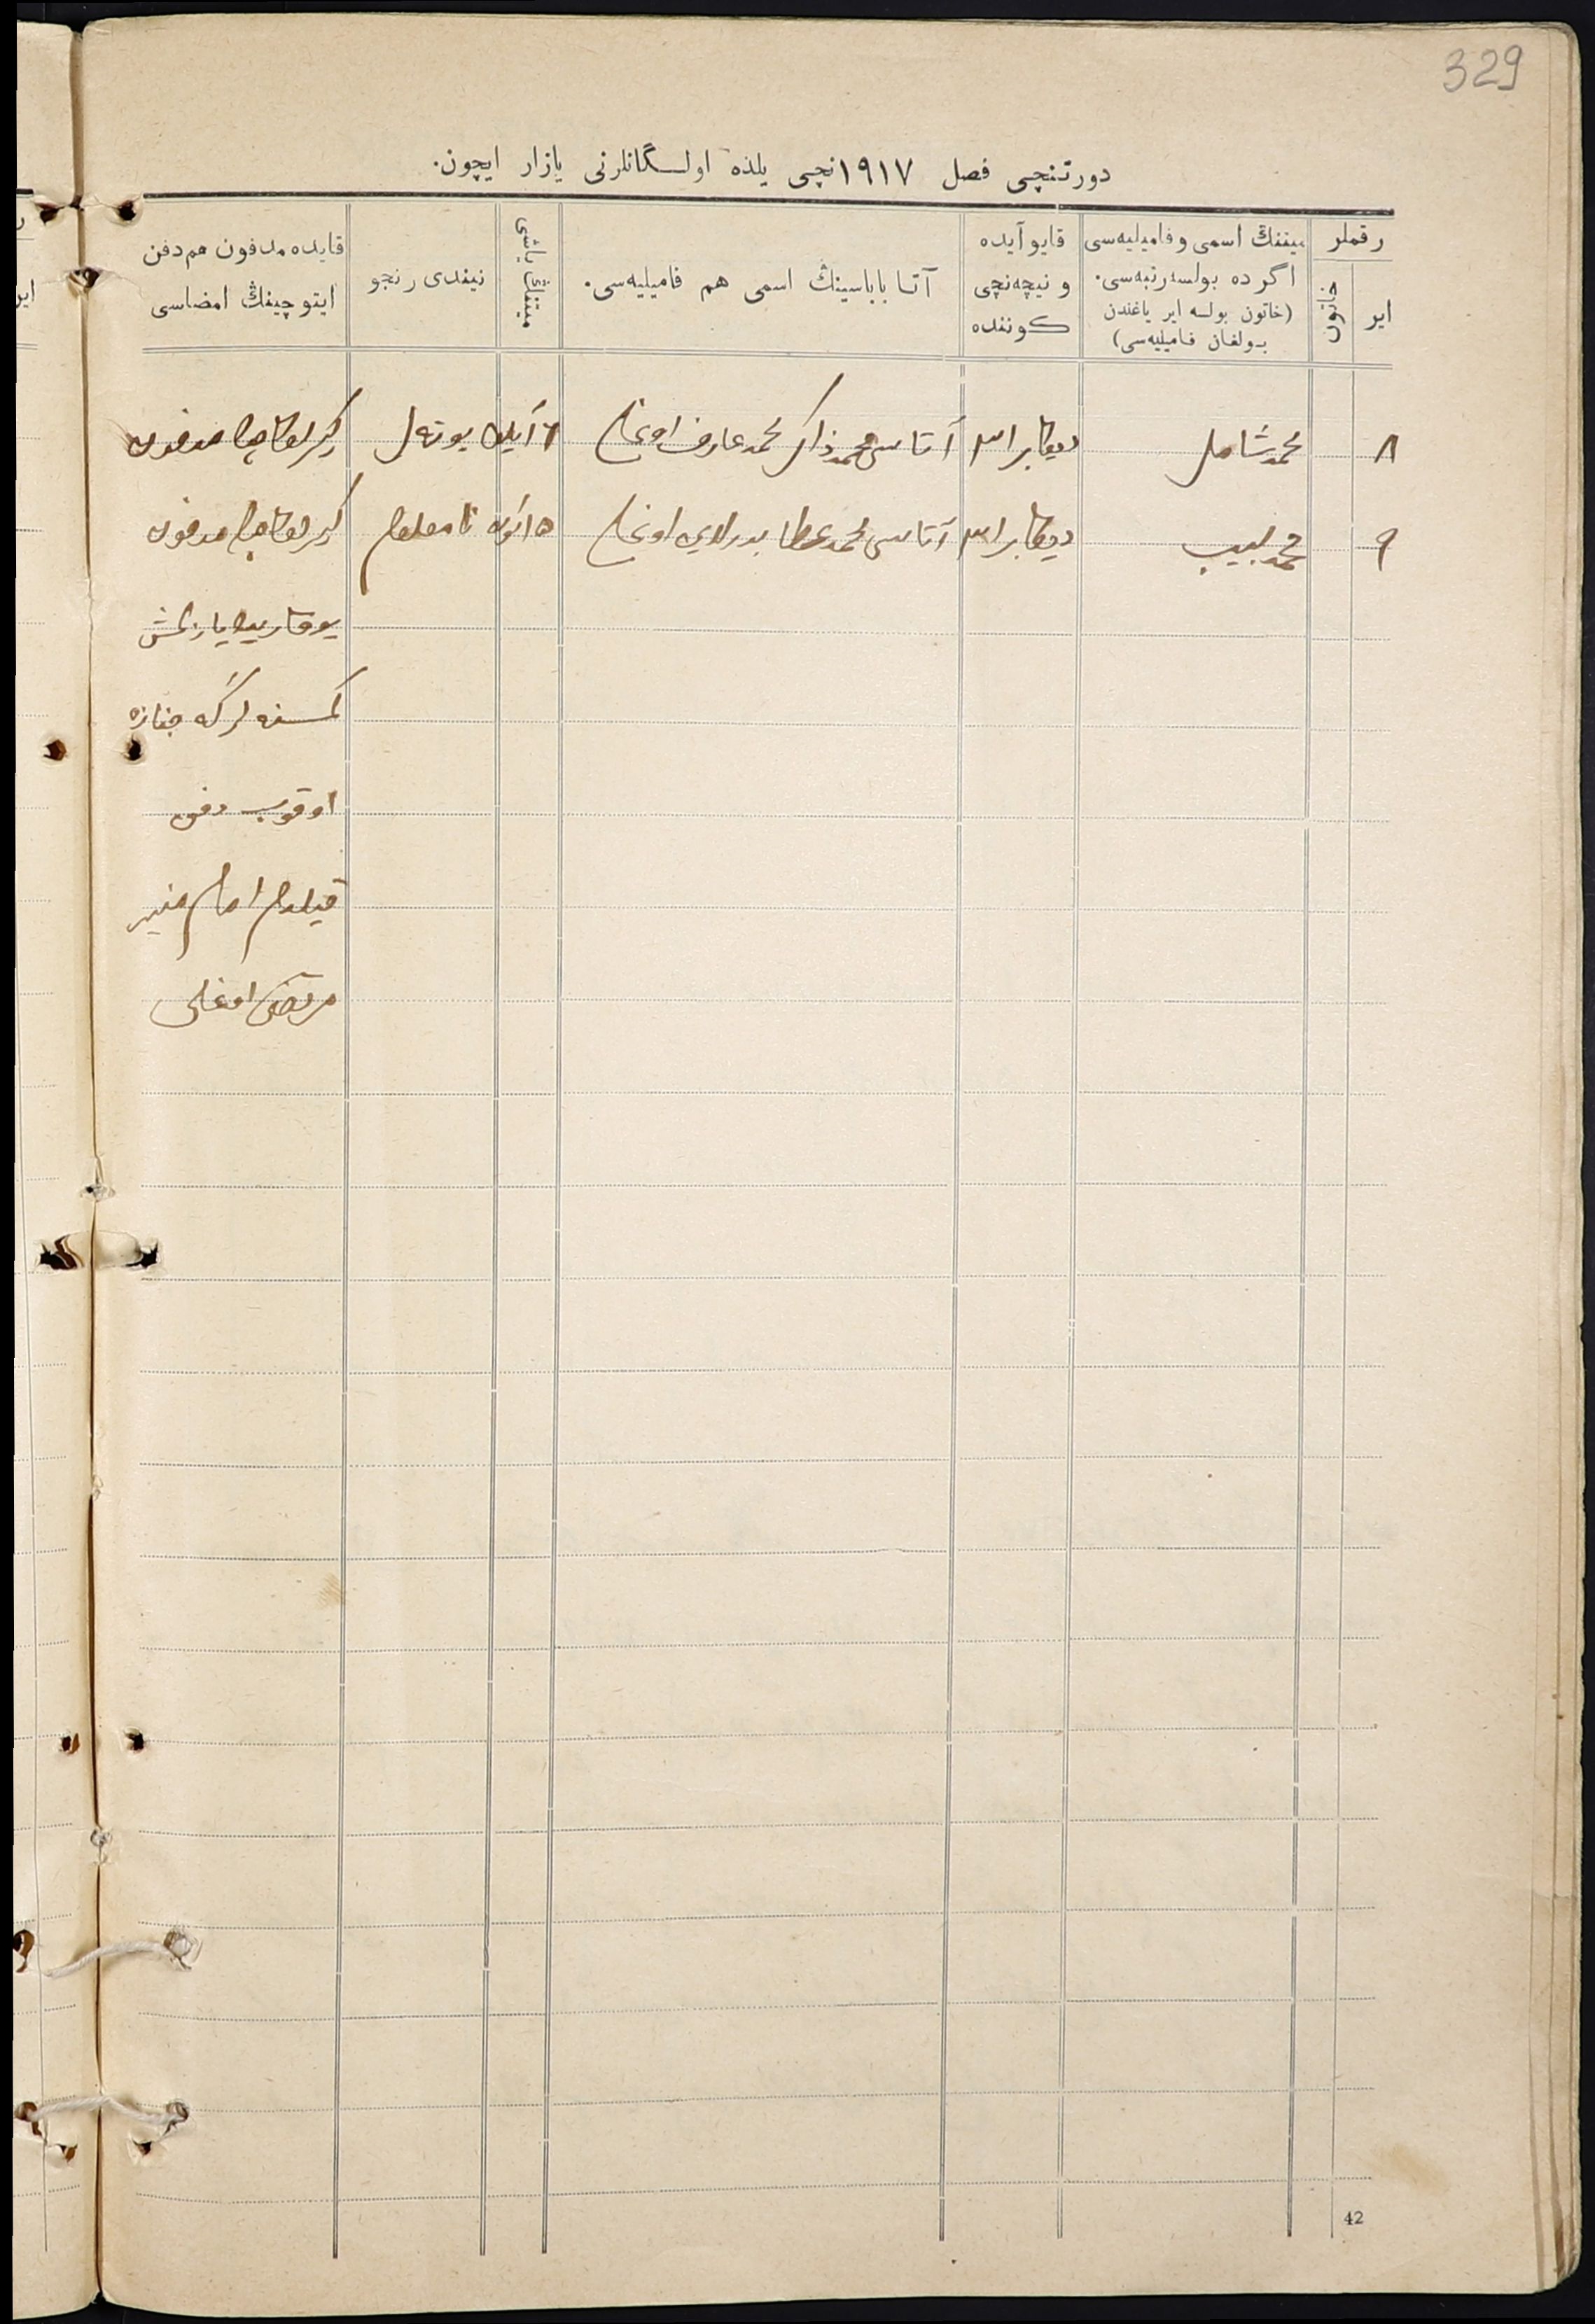 329
دورتنچی فصل ١٩١٧نچی یلده اولـگانلرنی یازار ایچون.
رقملر
ایر
خاتون
میتنڭ اسمی و فامیلیه‌سی
اگر ده بولسه رتبه‌سی.
(خاتون بولسه ایر یاغندن
بـولغان فـامیلیه‌سی)
قایو آیده
و نیچه‌نچی
کوننده
آتـا بابـاسینڭ اسمی هم فامیلیه‌سی.
میتنڭ یاشی
نیندی رنجو
قایده مدفون هم دفن
ایتوچینڭ امضاسی
٨ محمد شامل دیقابر ٣١ آتاسی محمد ذاکر محمد عارف اوغلی ٢ آیلق یوتەل مدفون
٩ محمد لبیب دیقابر ٣١ آتاسی محمد عطا بدرالدین اوغلی ١٥ کون نامعلوم مدفون
یوقاریده یازلمش
کمسنه لرگه جنازه
اوقوب دفن
قیلدم امام منیر
مرتضی اوغلی
42